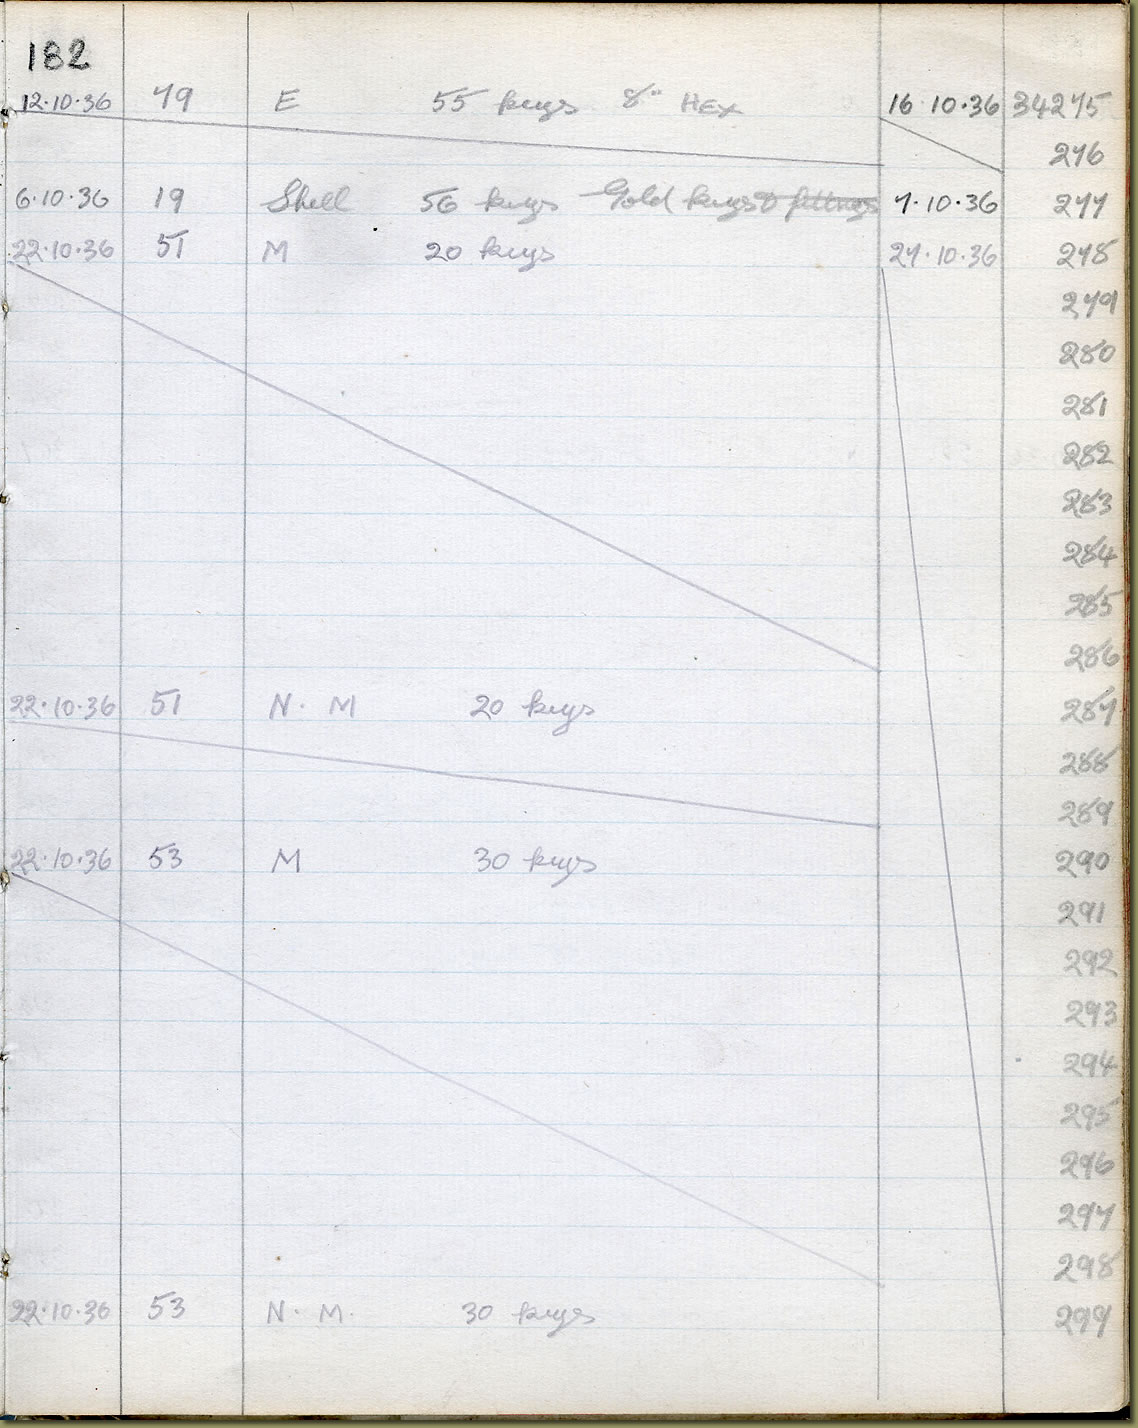 182
12·10·36 79 E 55 keys 8" HEX 16·10·36 34275
276
6·10·36 19 Shell 56 keys Gold keys & fittings 7·10·36 277
22·10·36 51 M 20 keys 27·10·36 278
279
280
281
282
283
284
285
286
22·10·36 51 N. M 20 keys 287
288
289
22·10·36 53 M 30 keys 290
291
292
293
294
295
296
297
298
22·10·36 53 N. M. 30 keys 299